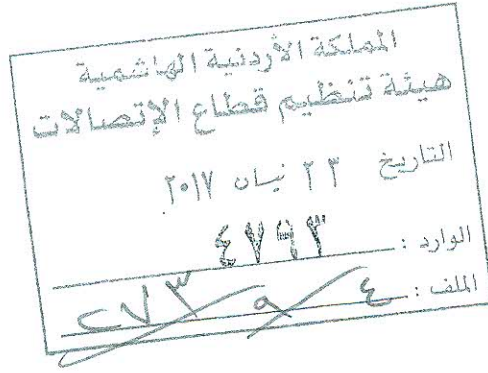 المملكة الأردنية الهاشمية
هيئة تنظيم قطاع الإتصالات
التاريخ ٢٣ نيسان ٢٠١٧
الوارد : ٤٧٩٣
الملف : ٤ / ٩ / ٢٧٣